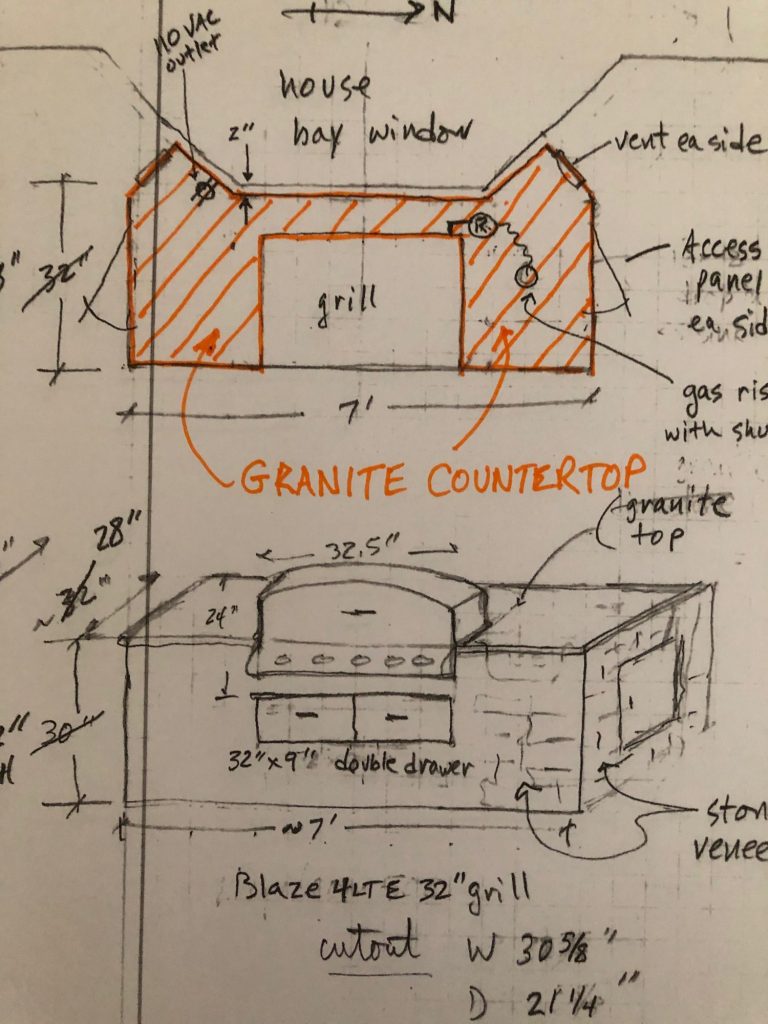 N
110 VAC
outlet
house
bay window
2"
vent ea side
32"
grill
R
Access
panel
ea sid
gas ris
with shu
7'
GRANITE COUNTERTOP
granite
top
28"
~32"
32.5"
24"
30"
H
32" x 9" double drawer
~7'
ston
venee
Blaze 4LTE 32" grill
cutout W 30 5/8"
D 21 1/4"